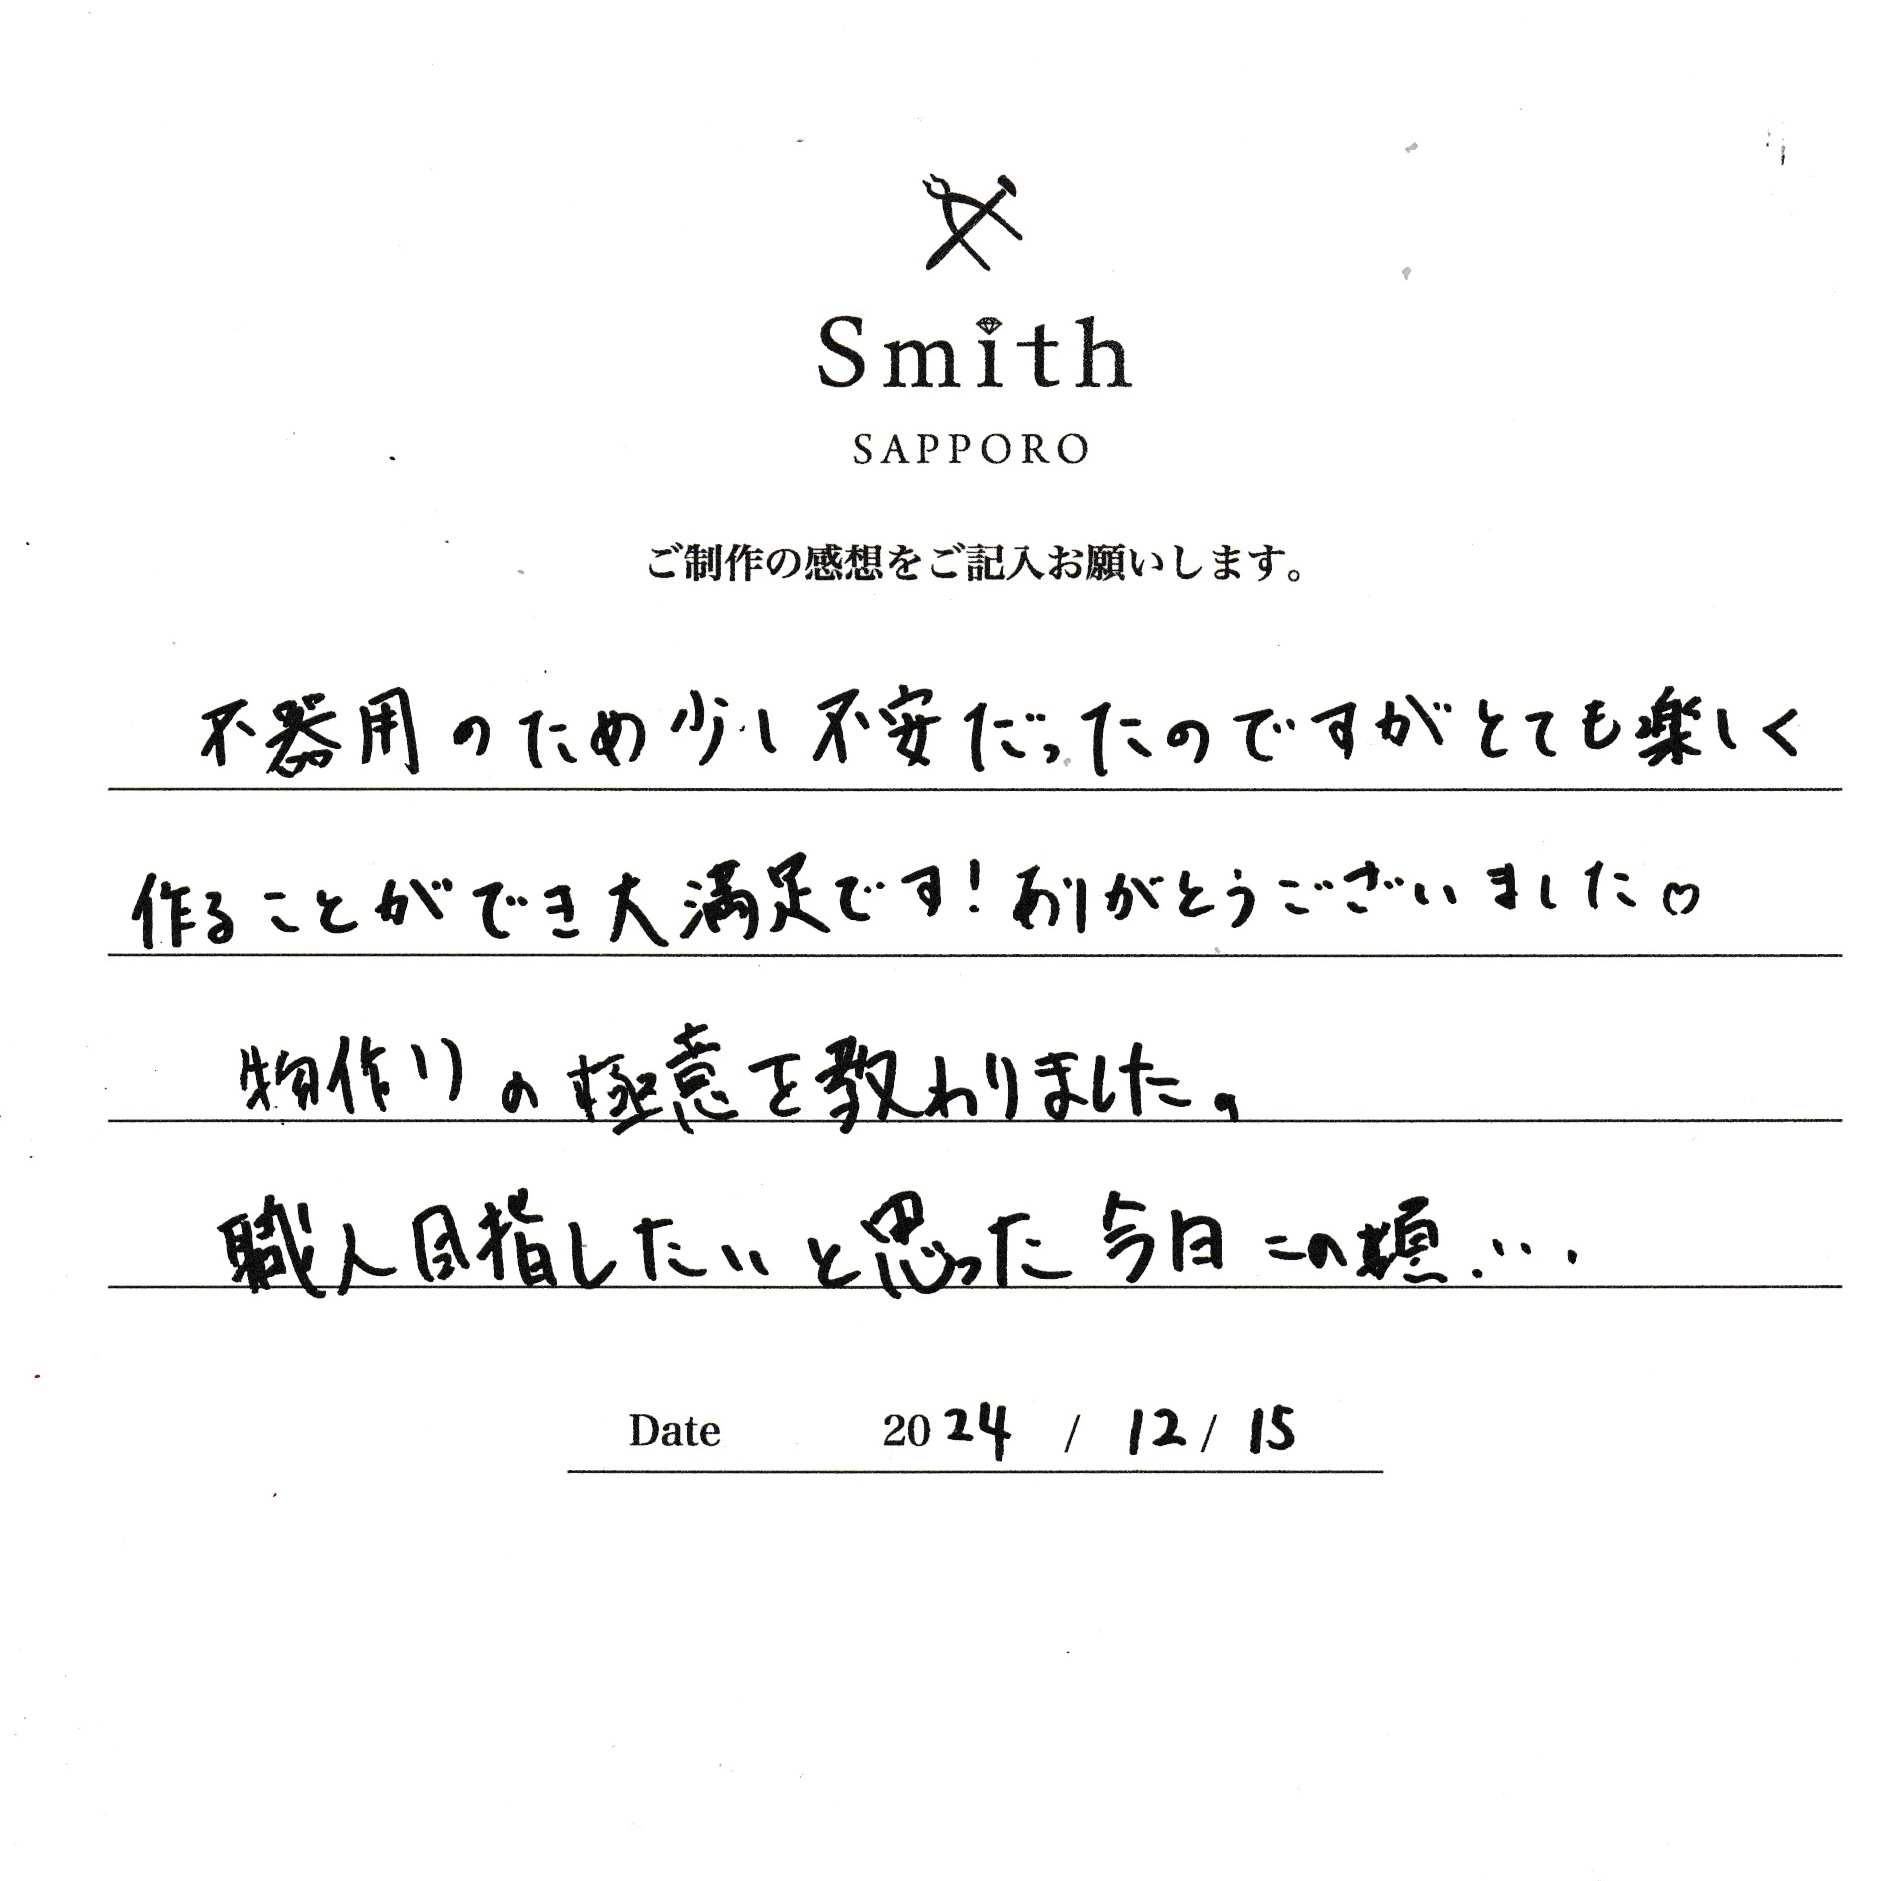 Smith
SAPPORO
ご制作の感想をご記入お願いします。
不器用のため少し不安だったのですがとても楽しく
作ることができ大満足です!ありがとうございました♡
物作りの極意を教わりました。
職人目指したいと思った今日この頃....
Date 2024 / 12 / 15